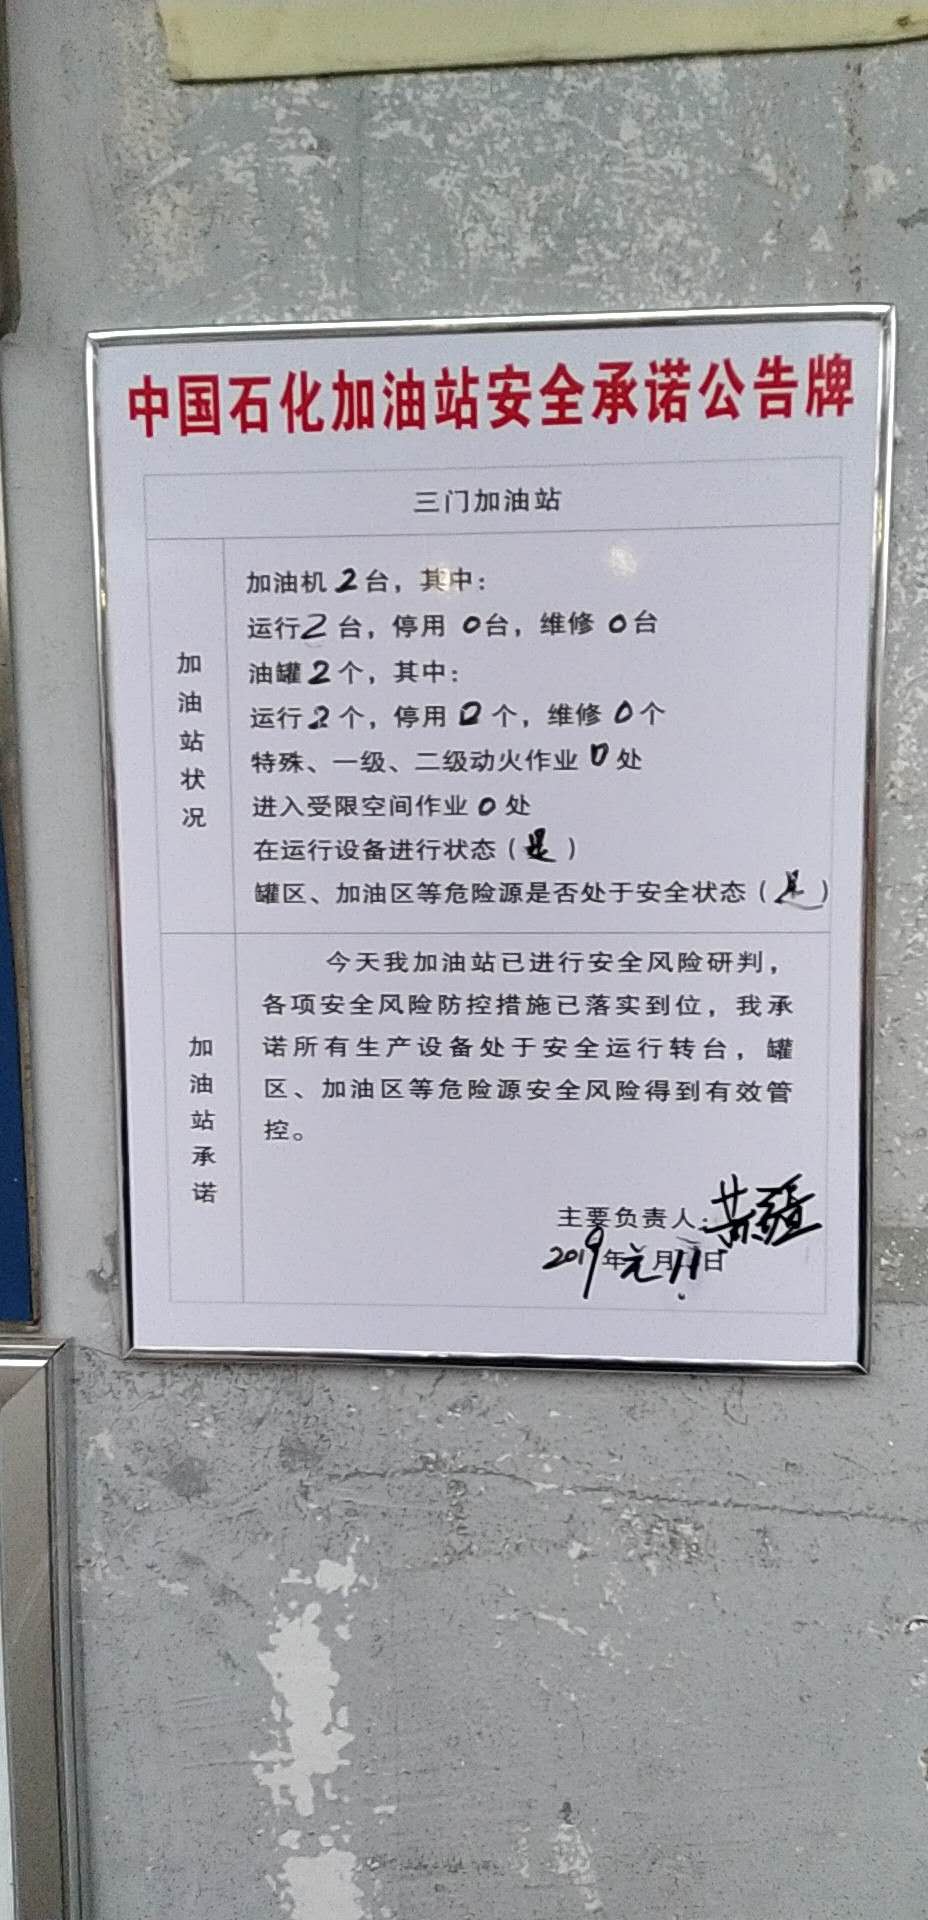 中国石化加油站安全承诺公告牌
三门加油站
加油站状况
加油机2台，其中：
运行2台，停用0台，维修0台
油罐2个，其中：
运行2个，停用0个，维修0个
特殊、一级、二级动火作业0处
进入受限空间作业0处
在运行设备进行状态（是）
罐区、加油区等危险源是否处于安全状态（是）
加油站承诺
今天我加油站已进行安全风险研判，
各项安全风险防控措施已落实到位，我承
诺所有生产设备处于安全运行转台，罐
区、加油区等危险源安全风险得到有效管
控。
主要负责人：
2019年元月11日